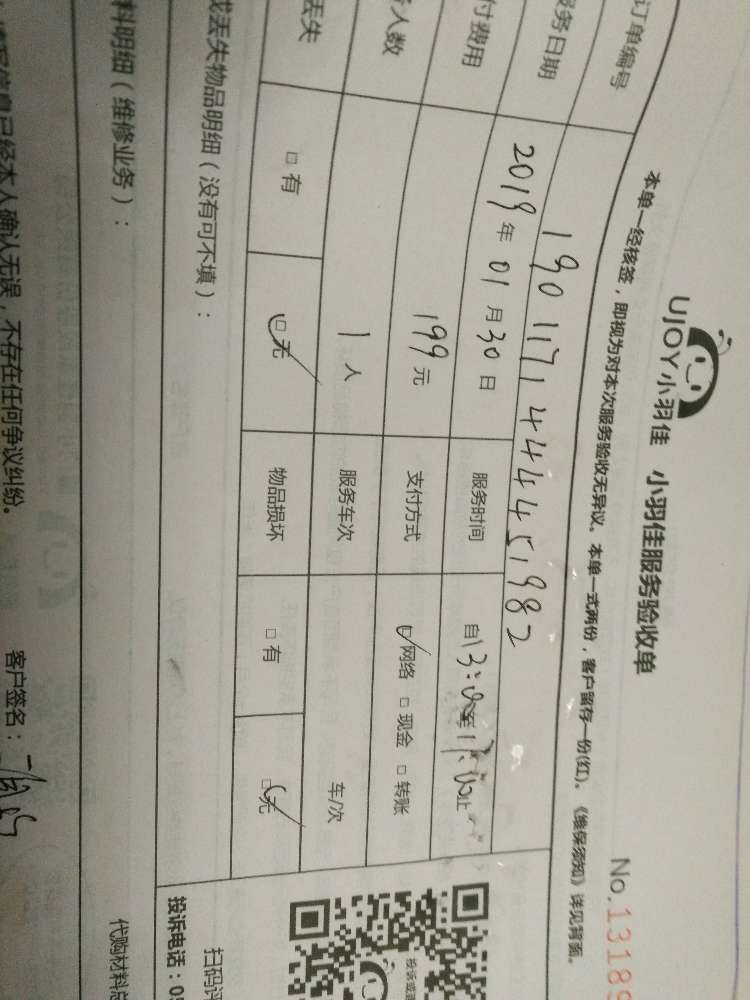 UJOY小羽佳 小羽佳服务验收单
No.13189
本单一经核签，即视为对本次服务验收无异议。本单一式两份，客户留存一份(红)。《维保须知》详见背面。
订单编号 1901171444451982
服务日期 2019年01月30日 服务时间 自13:00至17:00止
付费用 199元 支付方式 ☑网络 □现金 □转账
人数 1人 服务车次 车/次
丢失 □有 ☑无 物品损坏 □有 ☑无
或丢失物品明细（没有可不填）：
扫码评
投诉电话：05
料明细（维修业务）：
代购材料总
信息已经本人确认无误，不存在任何争议纠纷。
客户签名：